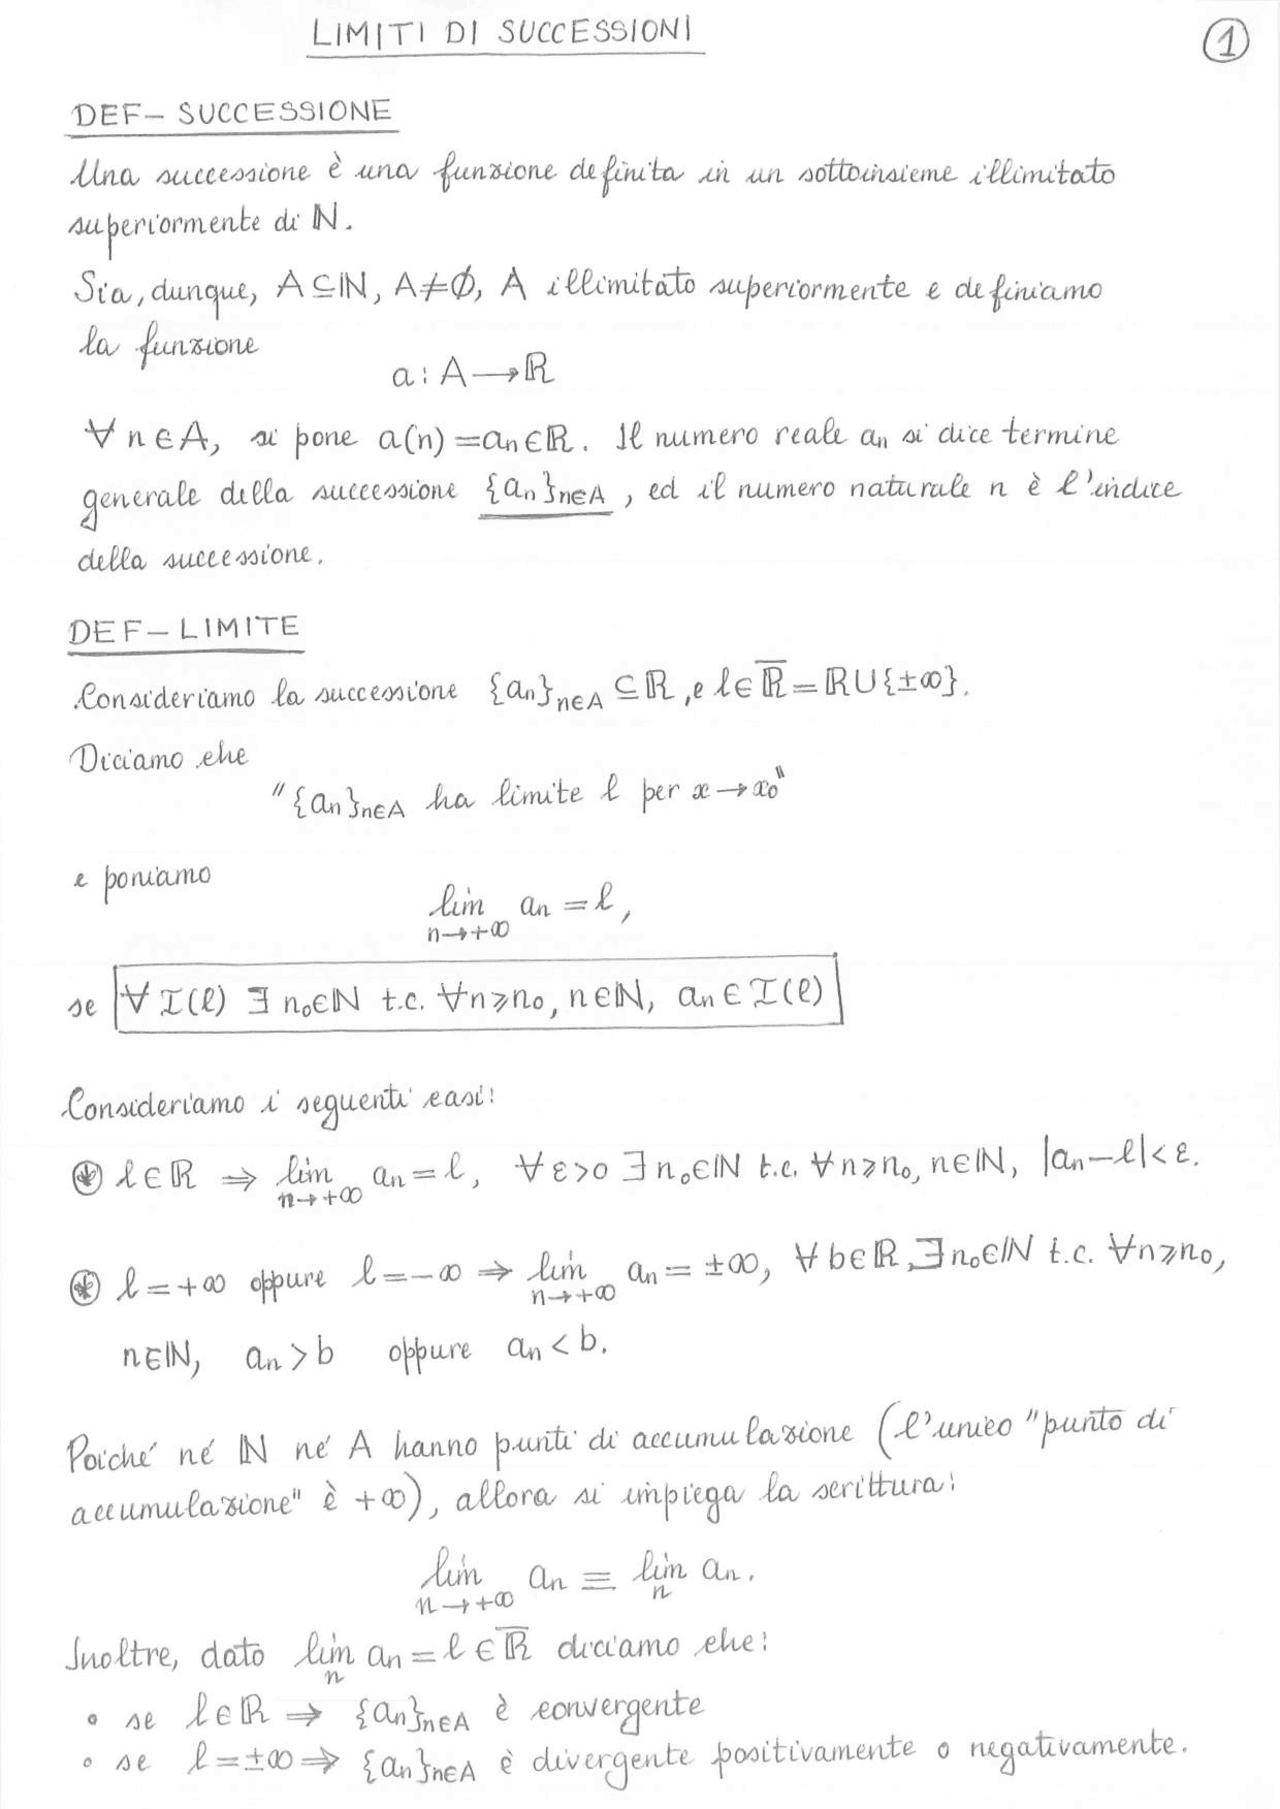 LIMITI DI SUCCESSIONI
1
DEF - SUCCESSIONE
Una successione è una funzione definita in un sottoinsieme illimitato
superiormente di ℕ.
Sia, dunque, A⊆ℕ, A≠∅, A illimitato superiormente e definiamo
la funzione
a: A⟶ℝ
∀n∈A, si pone a(n)=aₙ∈ℝ. Il numero reale aₙ si dice termine
generale della successione {aₙ}n∈A, ed il numero naturale n è l'indice
della successione.
DEF - LIMITE
Consideriamo la successione {aₙ}n∈A ⊆ℝ, e l∈ℝ̅=ℝ∪{±∞}.
Diciamo che
"{aₙ}n∈A ha limite l per x→x₀"
e poniamo
lim aₙ = l,
n→+∞
se ∀I(l) ∃n₀∈ℕ t.c. ∀n⩾n₀, n∈ℕ, aₙ∈I(l)
Consideriamo i seguenti casi:
⊛ l∈ℝ ⇒ lim aₙ = l, ∀ε>0 ∃n₀∈ℕ t.c. ∀n⩾n₀, n∈ℕ, |aₙ-l|<ε.
n→+∞
⊛ l=+∞ oppure l=-∞ ⇒ lim aₙ = ±∞, ∀b∈ℝ, ∃n₀∈ℕ t.c. ∀n⩾n₀,
n→+∞
n∈ℕ, aₙ>b oppure aₙ<b.
Poiché né ℕ né A hanno punti di accumulazione (l'unico "punto di
accumulazione" è +∞), allora si impiega la scrittura:
lim aₙ ≡ lim aₙ.
n→+∞ n
Inoltre, dato lim aₙ = l∈ℝ̅ diciamo che:
n
• se l∈ℝ ⇒ {aₙ}n∈A è convergente
• se l=±∞ ⇒ {aₙ}n∈A è divergente positivamente o negativamente.